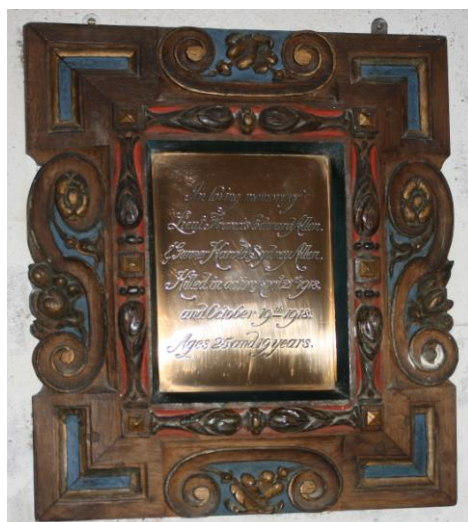 In loving memory of
Lieut. Francis Edward Allen.
& Gunner Harold Sydney Allen.
Killed in action 1918.
and October 19th 1918.
Ages 25 and 19 years.